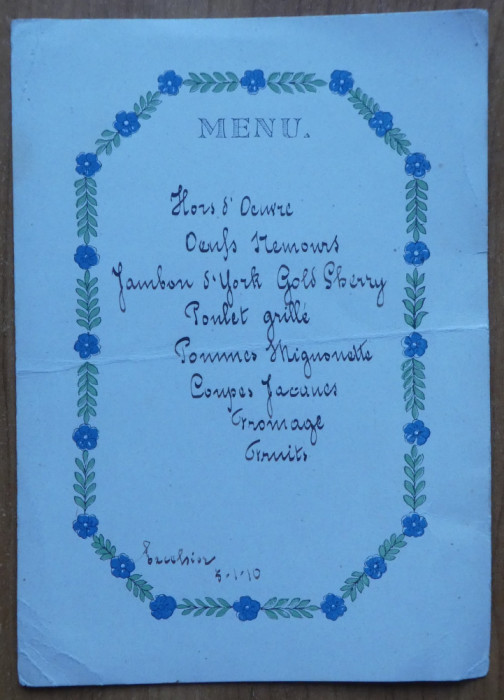 MENU.
Hors d'Oeuvre
Oeufs Nemours
Jambon d'York Gold Sherry
Poulet grillé
Pommes Mignonette
Coupes Jacques
Fromage
Fruits
Excelsior
3-1-10